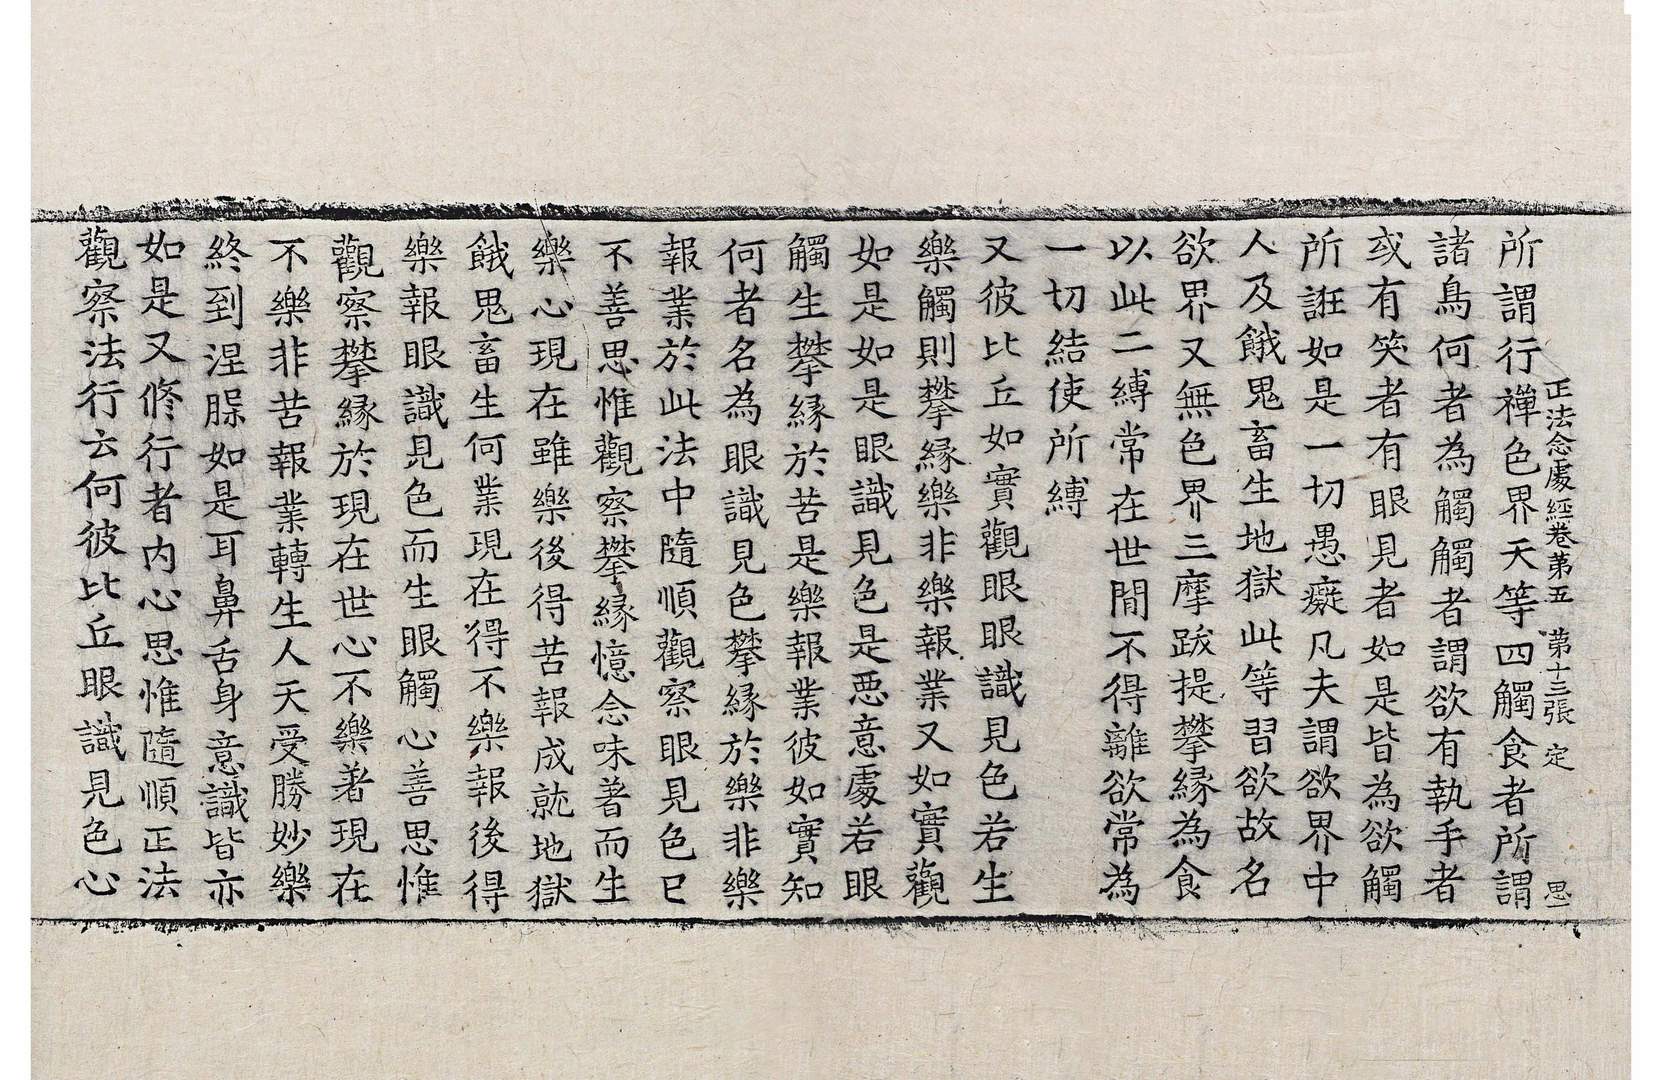 正法念處經卷第五 第十三張 定 思
所謂行禪色界天等四觸食者所謂
諸鳥何者為觸觸者謂欲有執手者
或有笑者有眼見者如是皆為欲觸
所誑如是一切愚癡凡夫謂欲界中
人及餓鬼畜生地獄此等習欲故名
欲界又無色界三摩跋提攀緣為食
以此二縛常在世間不得離欲常為
一切結使所縛
又彼比丘如實觀眼眼識見色若生
樂觸則攀緣樂非樂報業又如實觀
如是如是眼識見色是惡意處若眼
觸生攀緣於苦是樂報業彼如實知
何者名為眼識見色攀緣於樂非樂
報業於此法中隨順觀察眼見色已
不善思惟觀察攀緣憶念味著而生
樂心現在雖樂後得苦報成就地獄
餓鬼畜生何業現在得不樂報後得
樂報眼識見色而生眼觸心善思惟
觀察攀緣於現在世心不樂著現在
不樂非苦報業轉生人天受勝妙樂
終到涅槃如是耳鼻舌身意識皆亦
如是又修行者內心思惟隨順正法
觀察法行云何彼比丘眼識見色心